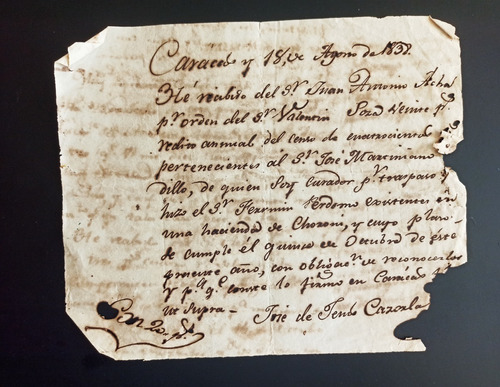 Caracas y 18, de Agosto de 183
He recibido del Sr. Juan Antonio Acha
pr. orden del Sr. Valentin Soza Veinte ps
redito annual del censo de cuatrocientos
pertenecientes al Sr. José Marciniano
dillo, de quien Soy curador pr. traspaso q
hizo el Sr. Fermin Perdomo existentes en
una hacienda de Choroni, y cuyo plazo
se cumple él quince de Octubre de éste
presente año, con obligacn. de reconocerlos
y pa. q. conste lo firmo en Caracas
ut supra - José de Jesus Cazorla
Son 20 ps.